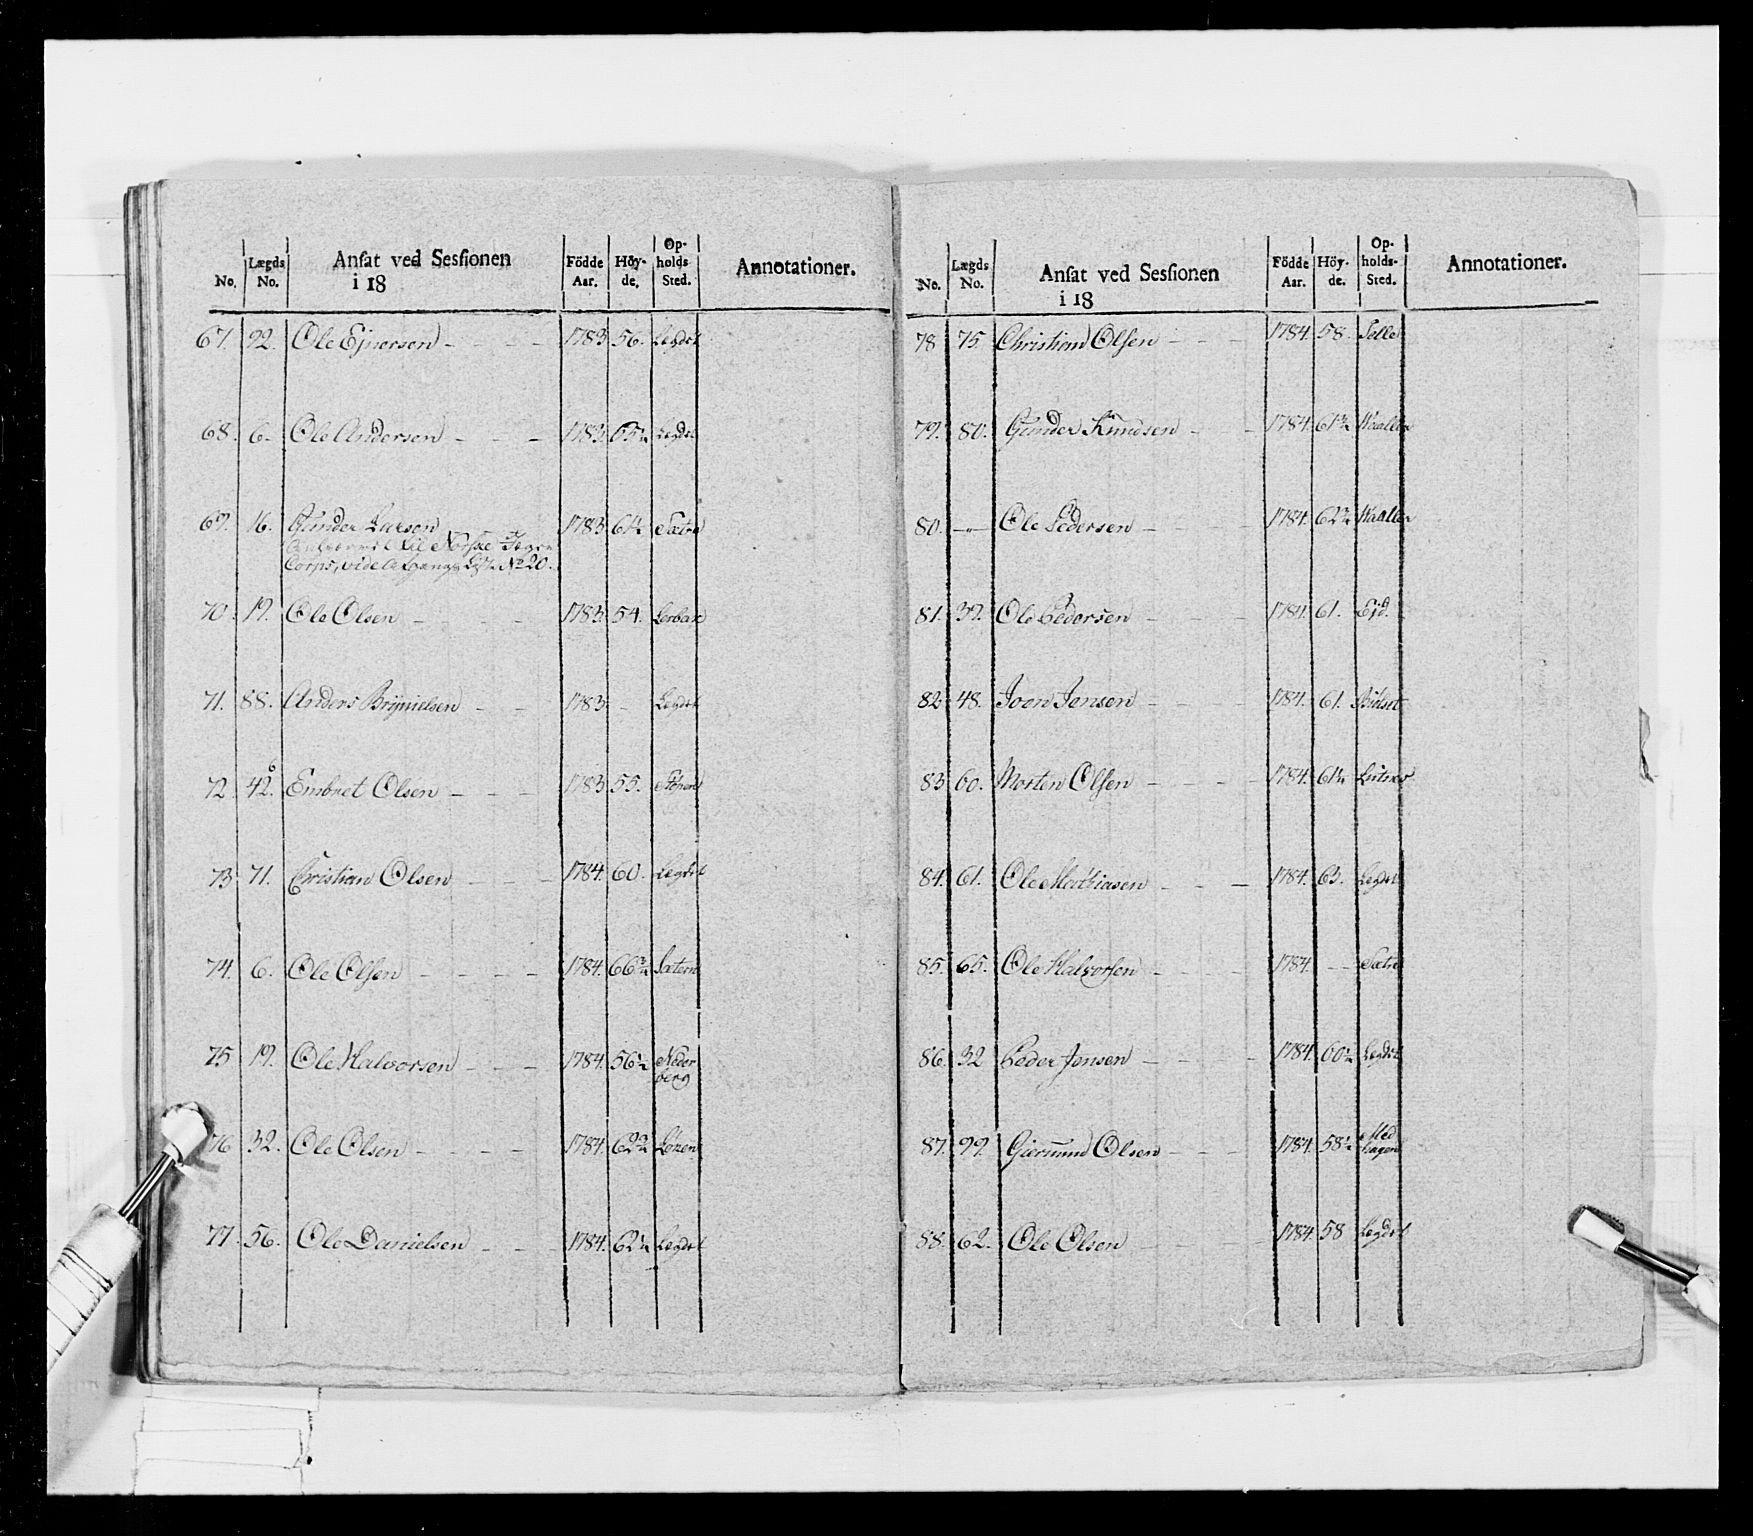 No. Lægds No. Ansat ved Sessionen i 18 Födde Aar. Höy-de. Op-holds Sted. Annotationer.
67. 92. Ole Ejnersen - - - 1783. 56. Legdet
68. 6. Ole Andersen - - - 1783. Legdet
69. 16. Gunder Larsen 1783. Sætre
til Norske Jeger
Corps, vide Afgangs Liste No 20.
70. 19. Ole Olsen - - - 1783. 54. Lerbak
71. 88. Anders Brÿnielsen - - 1783. - Legdet
72. 42. Embret Olsen - - - 1783. 55.
73. 71. Christian Olsen - - - 1784. 60. Legdet
74. 6. Ole Olsen - - - - 1784. Sætern
75. 19. Ole Halvorsen - - - 1784. 56½ Neder
berg
76. 32. Ole Olsen - - - - 1784. Löken
77. 56. Ole Danielsen - - - 1784. 62½ Legdet
No. Lægds No. Ansat ved Sessionen i 18 Födde Aar. Höy-de. Op-holds-Sted. Annotationer.
78. 75. Christian Olsen - - - 1784. 58. Selle
79. 80. Gunder Knudsen - - 1784. Waaller
80. -"- Ole Pedersen - - - 1784. Waaller
81. 39. Ole Pedersen - - - 1784. 61. Ejd.
82. 48. Joen Jensen - - - 1784. 61.
83. 60. Morten Olsen - - - 1784. 61½
84. 61. Ole Mathiasen - - - 1784. 63. Legdet
85. 65. Ole Halvorsen - - - 1784. - - Sætre
86. 32 Peder Jensen - - - 1784. 60½ Legdet
87. 99. Giermund Olsen - - - 1784. 58½
hagen
88. 62. Ole Olsen - - - 1784. 58 Legdet